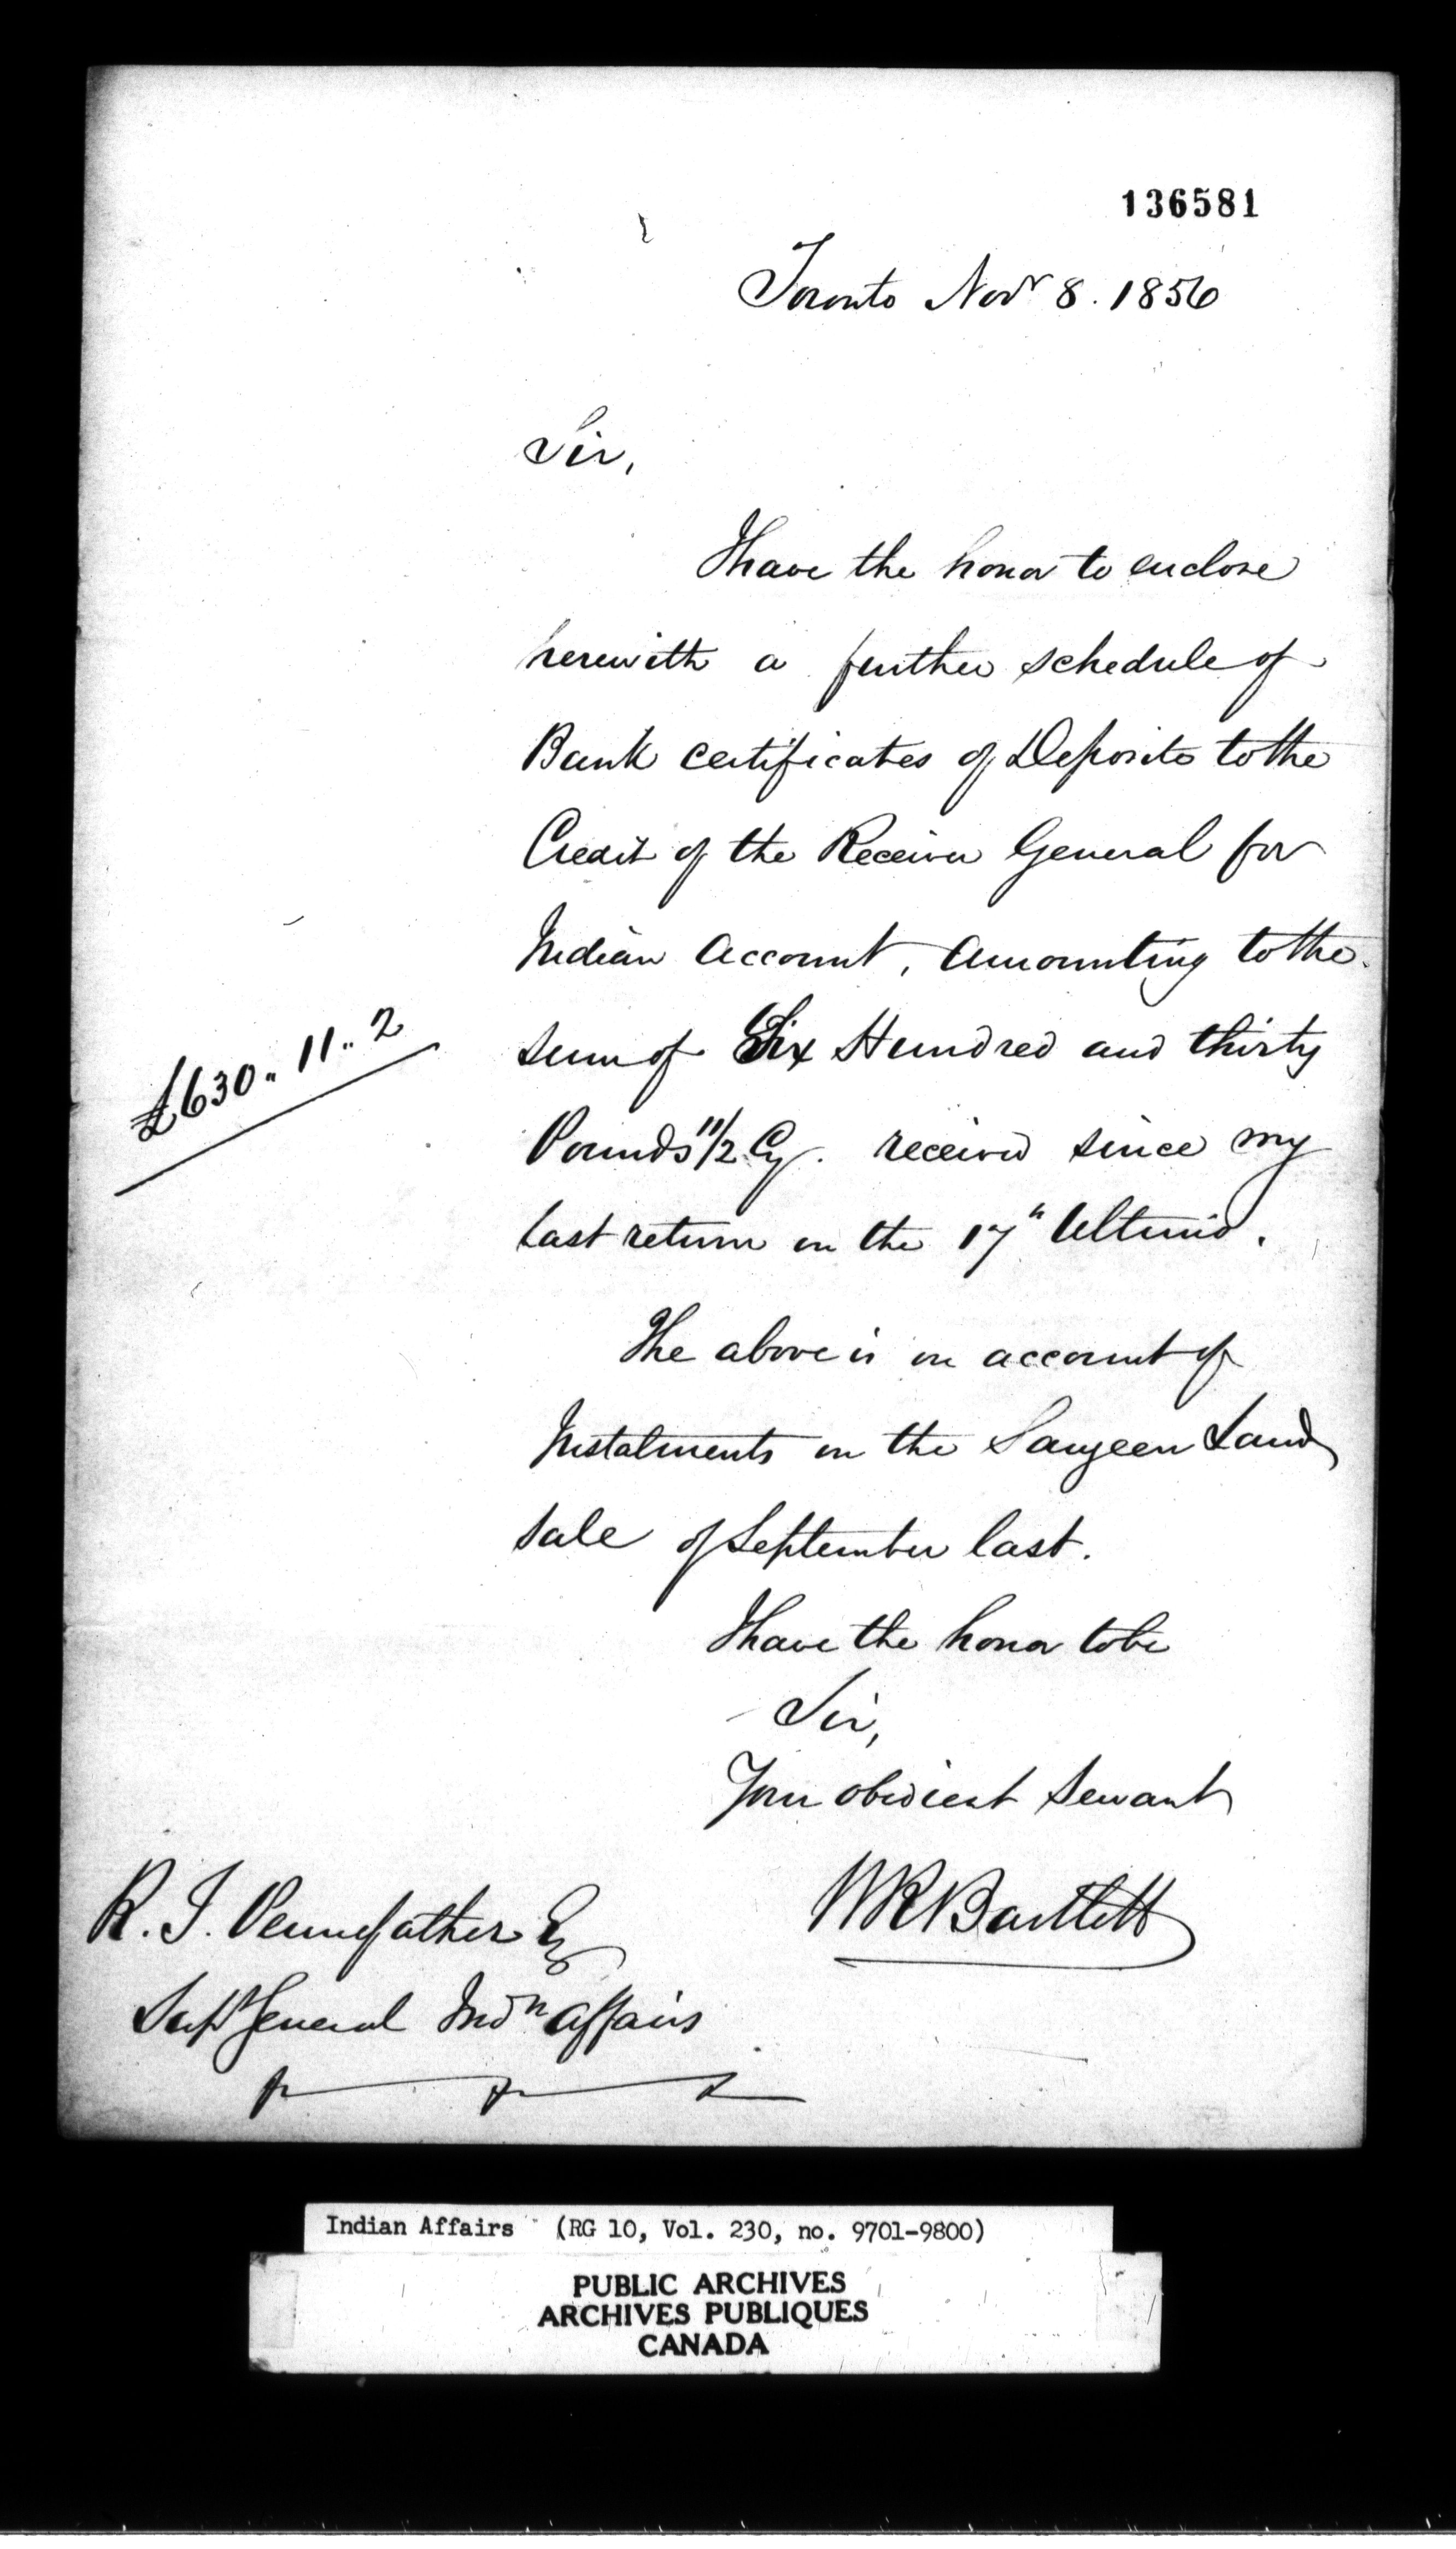 136581
Toronto Novr 8. 1856
Sir,
I have the honor to enclose
herewith a further schedule of
Bank certificates of Deposits to the
Credit of the Receiver General for
Indian Account, Amounting to the
sum of Six Hundred and thirty
Pounds 11/2 Cy. received since my
last return on the 17th Ultimo.
£630. 11.. 2
The above is on account of
Instalments on the Saugeen Land
Sale of September last.
I have the honor to be
Sir,
Your obedient Servant
WRBartlett
R. T. Pennefather Esq
Supt General Indn Affairs
Indian Affairs (RG 10, Vol. 230, no. 9701-9800)
PUBLIC ARCHIVES
ARCHIVES PUBLIQUES
CANADA